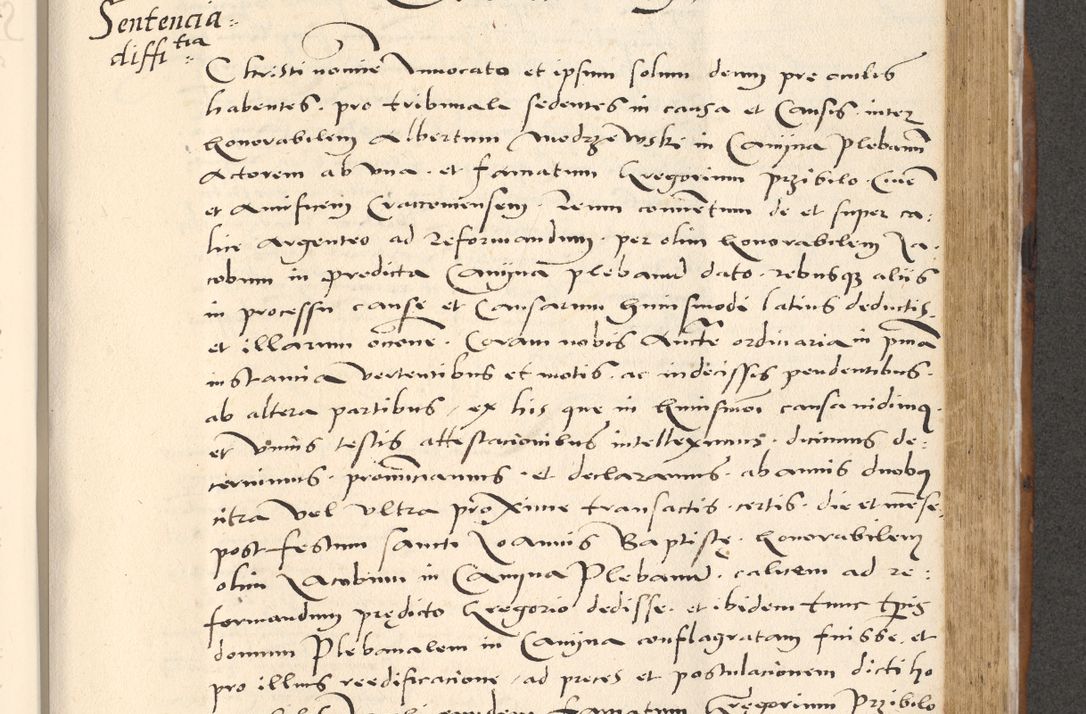 Sentencia
diffitia
Christi nomine Innocato et ipsum solum deum pre oculis
habentes. pro tribunali sedentes in causa et Causis. inter
honorabilem Albertum Modrzewski in Camyna Plebanum
Actorem ab vna. et famatum Gregorium Przibilo. Ciuem
et Aurificem Cracouiensem. Reum conuentum de et super ca:
lice argenteo ad reformandum. per olim honorabilem Ia.
cobum in predicta Camyna plebanum dato. rebusque aliis
in processu cause et Causarum huiusmodi latius deductis.
et illarum occone. Coram nobis Aucte ordinaria in pma
instantia vertentibus et motis. ac indecissis pendentibus.
ab altera partibus, ex his que in huiusmoi causa vidimus.
et vnius testis attestacionibus intelleximus. dicimus de:
cernimus. pronunciamus. et declaramus. ab annis duobus
citra vel vltra proxime transactis. certis. die et mense.
post festum sancti Ioannis Baptistę. honorabilem
olim Iacobum in Camyna Plebanum. calicem ad re:
formandum prędicto Gregorio dedisse. et ibidem tunc tpis
domum Plebanalem in Camyna conflagratam fuisse. et
pro illius reedificacione, ad preces et postulacionem dicti ho
eundem famatum Gregorium Przibilo